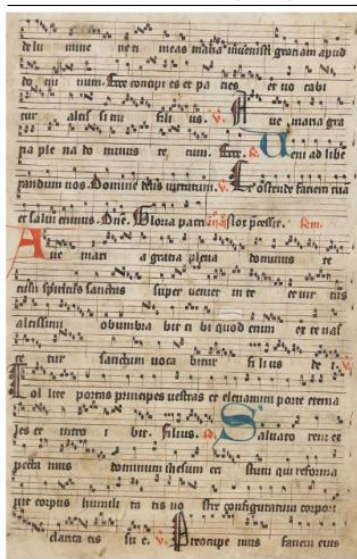 de lu mine ne ti meas maria invenisti gratiam apud
do mi num. Ecce concipi es et pa ries et vo cabi
tur altis si mi fili us. v. A ve maria gra
tia ple na do minus te cum. Ecce. R. Veni ad libe
randum nos. Domine deus virtutum. v. Et ostende faciem tuā
et salvi erimus. Dn̄e. Gloria patri
A ve mari a gratia plena dominus te
cum spiritus sanctus super veniet in te et vir tus
altissimi obumbra bit ti bi quod enim ex te nas
ce tur sanctum voca bitur fi li us de i. v.
Tol lite portas principes vestras et elevamini porte eterna
les et intro i bit. filius. R. Salvato rem ex
pecta mus dominum ihesum cri stum qui reforma
vit corpus humili ta tis no stre configuratum corpori
clarita tis su e. v. Preocupe mus faciem eius